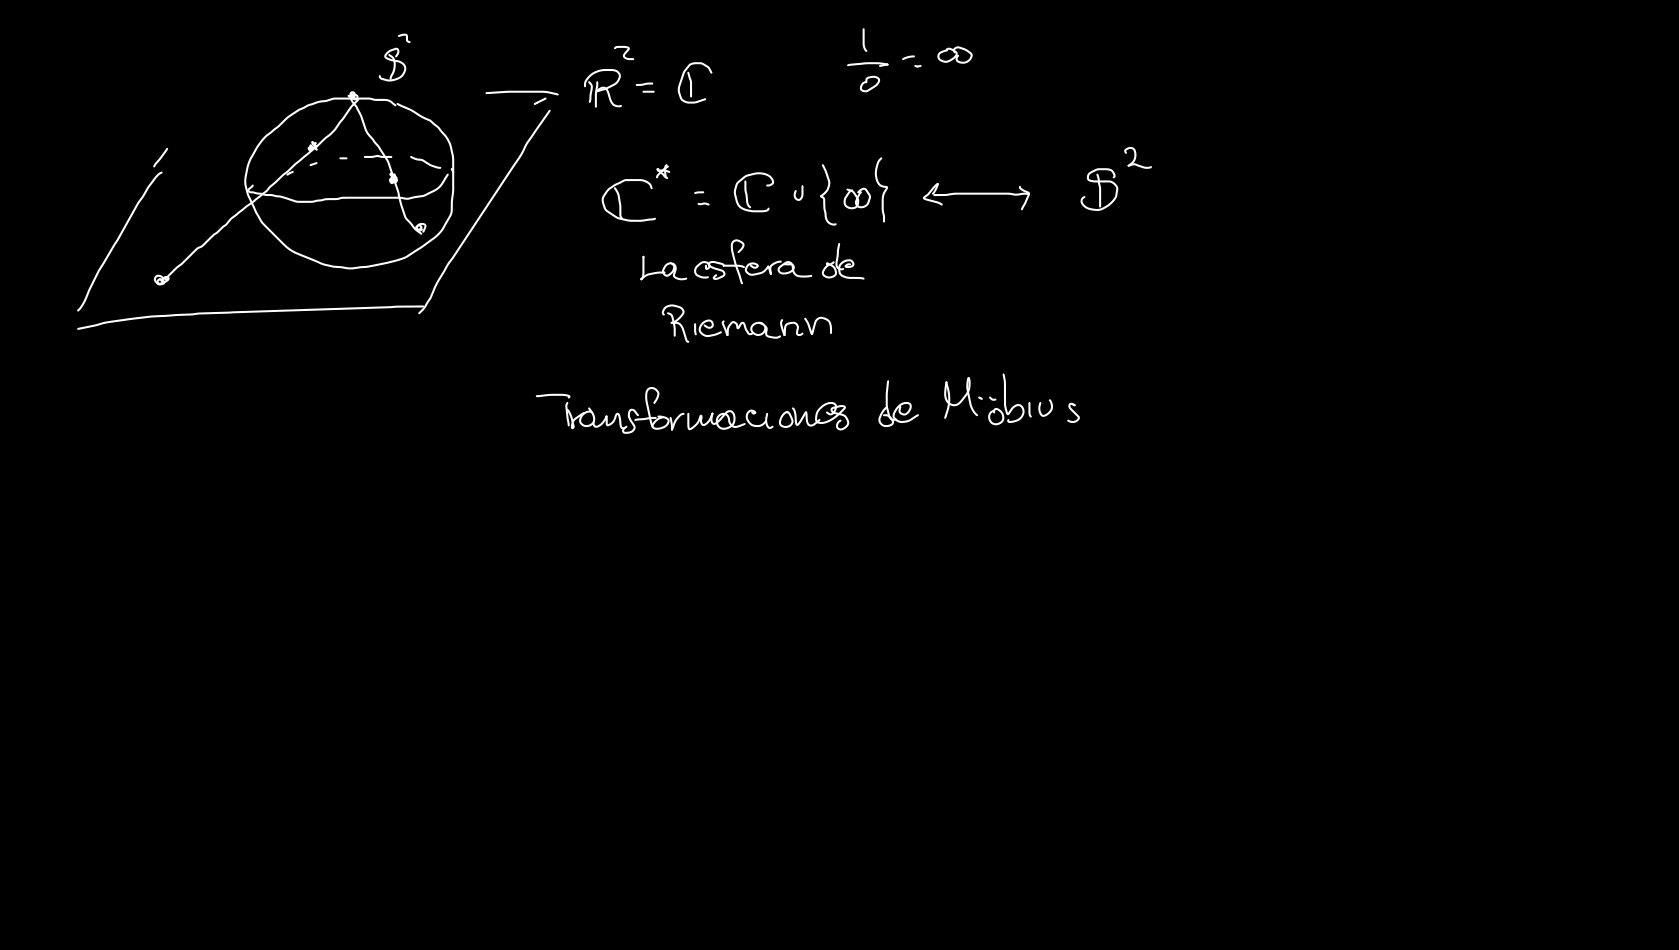 𝕊²
ℝ² = ℂ
1/0 = ∞
ℂ* = ℂ ∪ {∞} ⟷ 𝕊²
La esfera de
Riemann
Transformaciones de Möbius